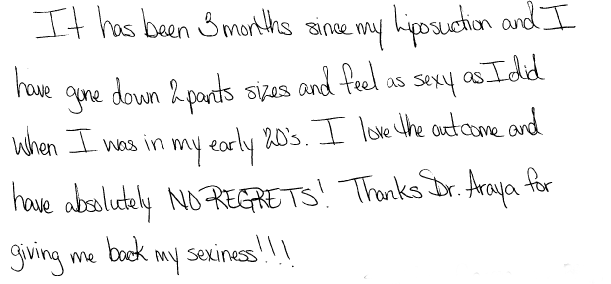 It has been 3 months since my liposuction and I
have gone down 2 pants sizes and feel as sexy as I did
when I was in my early 20's. I love the outcome and
have absolutely NO REGRETS! Thanks Dr. Araya for
giving me back my sexiness!!!